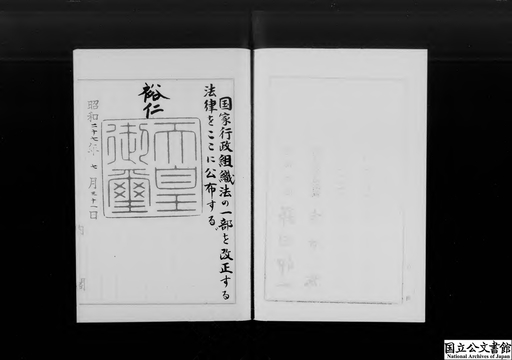 国家行政組織法の一部を改正する
法律をここに公布する
裕仁
天皇
御璽
昭和二十七年七月三十一日
国立公文書館
National Archives of Japan